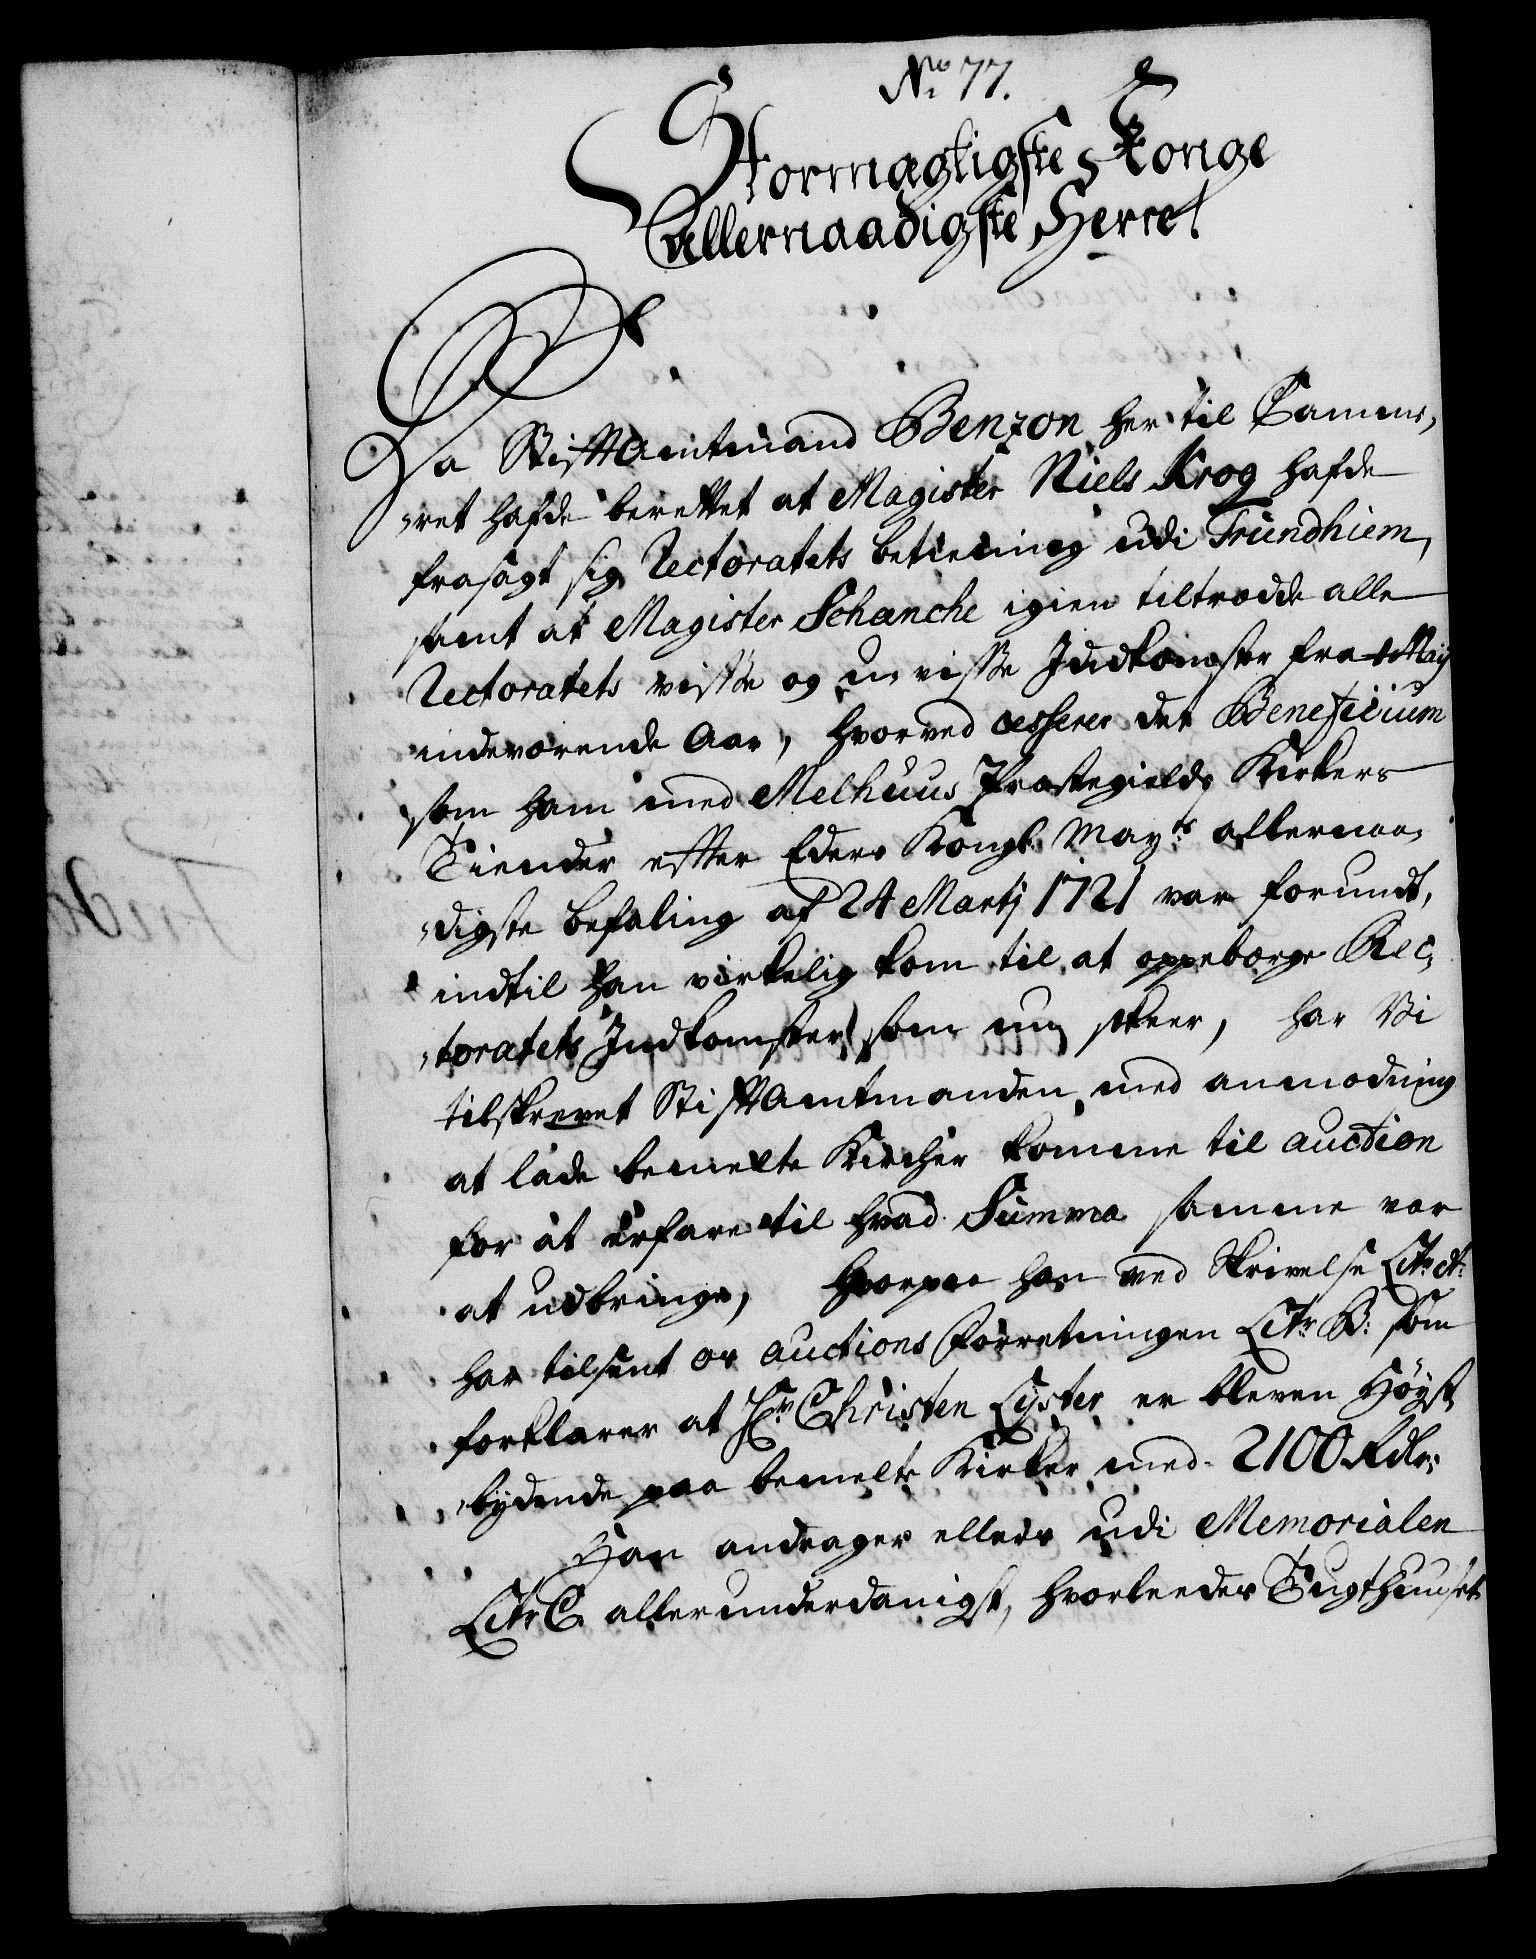 No 77.
Stormægtigste Konge
Allernaadigste Herre!
Da Stiftamtmand Benzon her til Cammer,
,,ret hafde berettet at Magister Niels Krog hafde
frasagt sig Rectoratets betiening udi Trundhiem,
samt at Magister Schanche igien tiltrædde alle
Rectoratets visse og u,,visse Indkomster fra Maij
indeværende Aar, hvorved cesserer det Beneficium
som ham med Melhuus Præstegields Kirkers
Tiender efter Eders Kongl. Mayts allernaa,
,,digste befaling af 24 Martij 1721 var forundt,
indtil han virkelig kom til at oppebærge Rec,
,,toratets Indkomster, som nu skeer, har Vi
tilskrevet Stiftamtmanden med anmodning
at lade bemelte Kircher komme til auction
for at erfare til hvad Summa samme var
at udbringe, hvorpaa han ved Skrivelse Litr A:
har tilsent os auctions Forretningen Litr B: som
forklarer at Hr Christen Lyster er bleven Høyst,
,,bydende paa bemelte Kirker med 2100 Rdlr:
Han andrager ellers udi Memorialen
Litr C allerunderdanigst, hvorleedes Tugthuuset